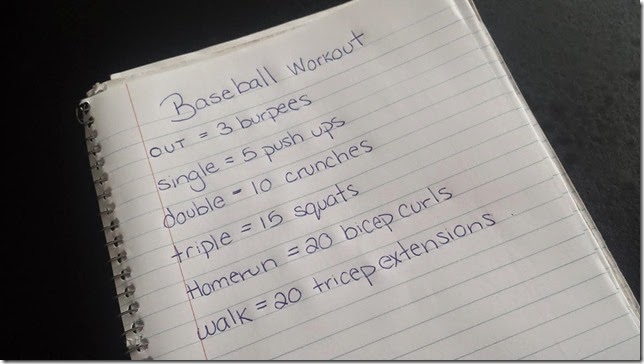 Baseball Workout
OUT = 3 burpees
single = 5 push ups
double - 10 crunches
triple = 15 squats
Homerun = 20 bicep curls
walk = 20 tricep extensions.